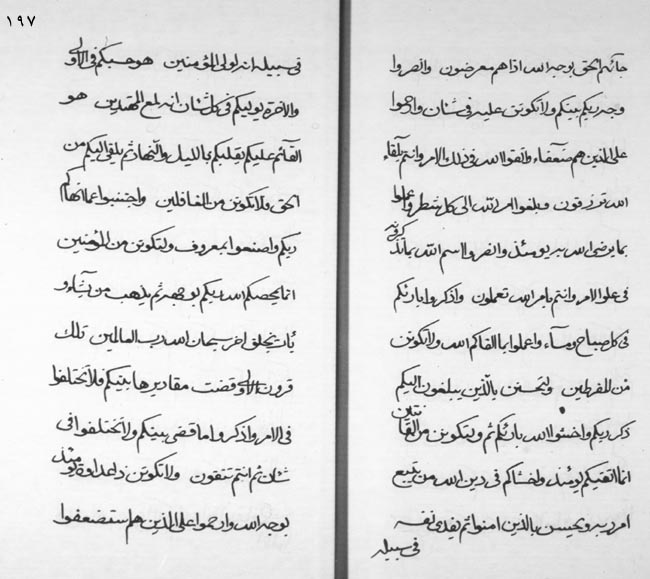 ١٩٧
جائهم الحق بوجه الله اذا هم معرضون وانصروا
وجه ربكم بينكم ولا تكونن عليه في شان وارحموا
على الذين هم ضعفاء واتقوا الله في ذلك الامر وانتم بلقاء
الله ترزقون وبلغوا امر الله الى كل شطر واعملوا
بما يرضى الله به يومئذ وانصروا اسم الله بما تذكرون
في علو الامر وانتم بامر الله تعملون واذكروا بارئكم
في كل صباح ومساء واعملوا بما القاكم الله ولا تكونن
من المفرطين ولتحسنن بالذين يبلغون اليكم
ذكر ربكم واخشوا الله بارئكم ثم ولتكونن من القانتين
انما اتقيكم يومئذ واخشاكم في دين الله من يتبع
امر ربه ويحسن بالذين امنوا ثم يفدى نفسه
في سبيله
في سبيله انه لولى المؤمنين هو حسبكم في الاولى
والاخرة يوليكم في كل شان انه لمع المهتدين هو
القائم عليكم يقلبكم بالليل والنهار ثم يلقى اليكم من
الحق ولا تكونن من الغافلين واجتنبوا عما نهاكم
ربكم واصنعوا بمعروف ولتكونن من المؤمنين
انما يحصكم الله ربكم بوجهه ثم يذهب من يشاء و
يأت بخلق اخر سبحان الله رب العالمين تلك
قرون الاولى قضت مقاديرها بينكم فلا تختلفوا
في الامر واذكروا ما قضى بينكم ولا تختلفوا في
شان ثم انتم تتقون ولا تكونن ذا عداوة يومئذ
بوجه الله وارحموا على الذين هم استضعفوا